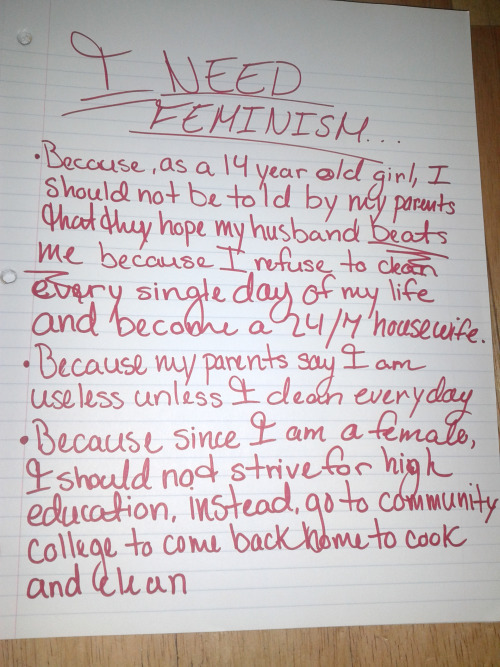 I NEED
FEMINISM...
• Because, as a 14 year old girl, I
should not be told by my parents
that they hope my husband beats
me because I refuse to clean
every single day of my life
and become a 24/7 housewife.
• Because my parents say I am
useless unless I clean everyday
• Because since I am a female,
I should not strive for high
education, instead, go to community
college to come back home to cook
and clean